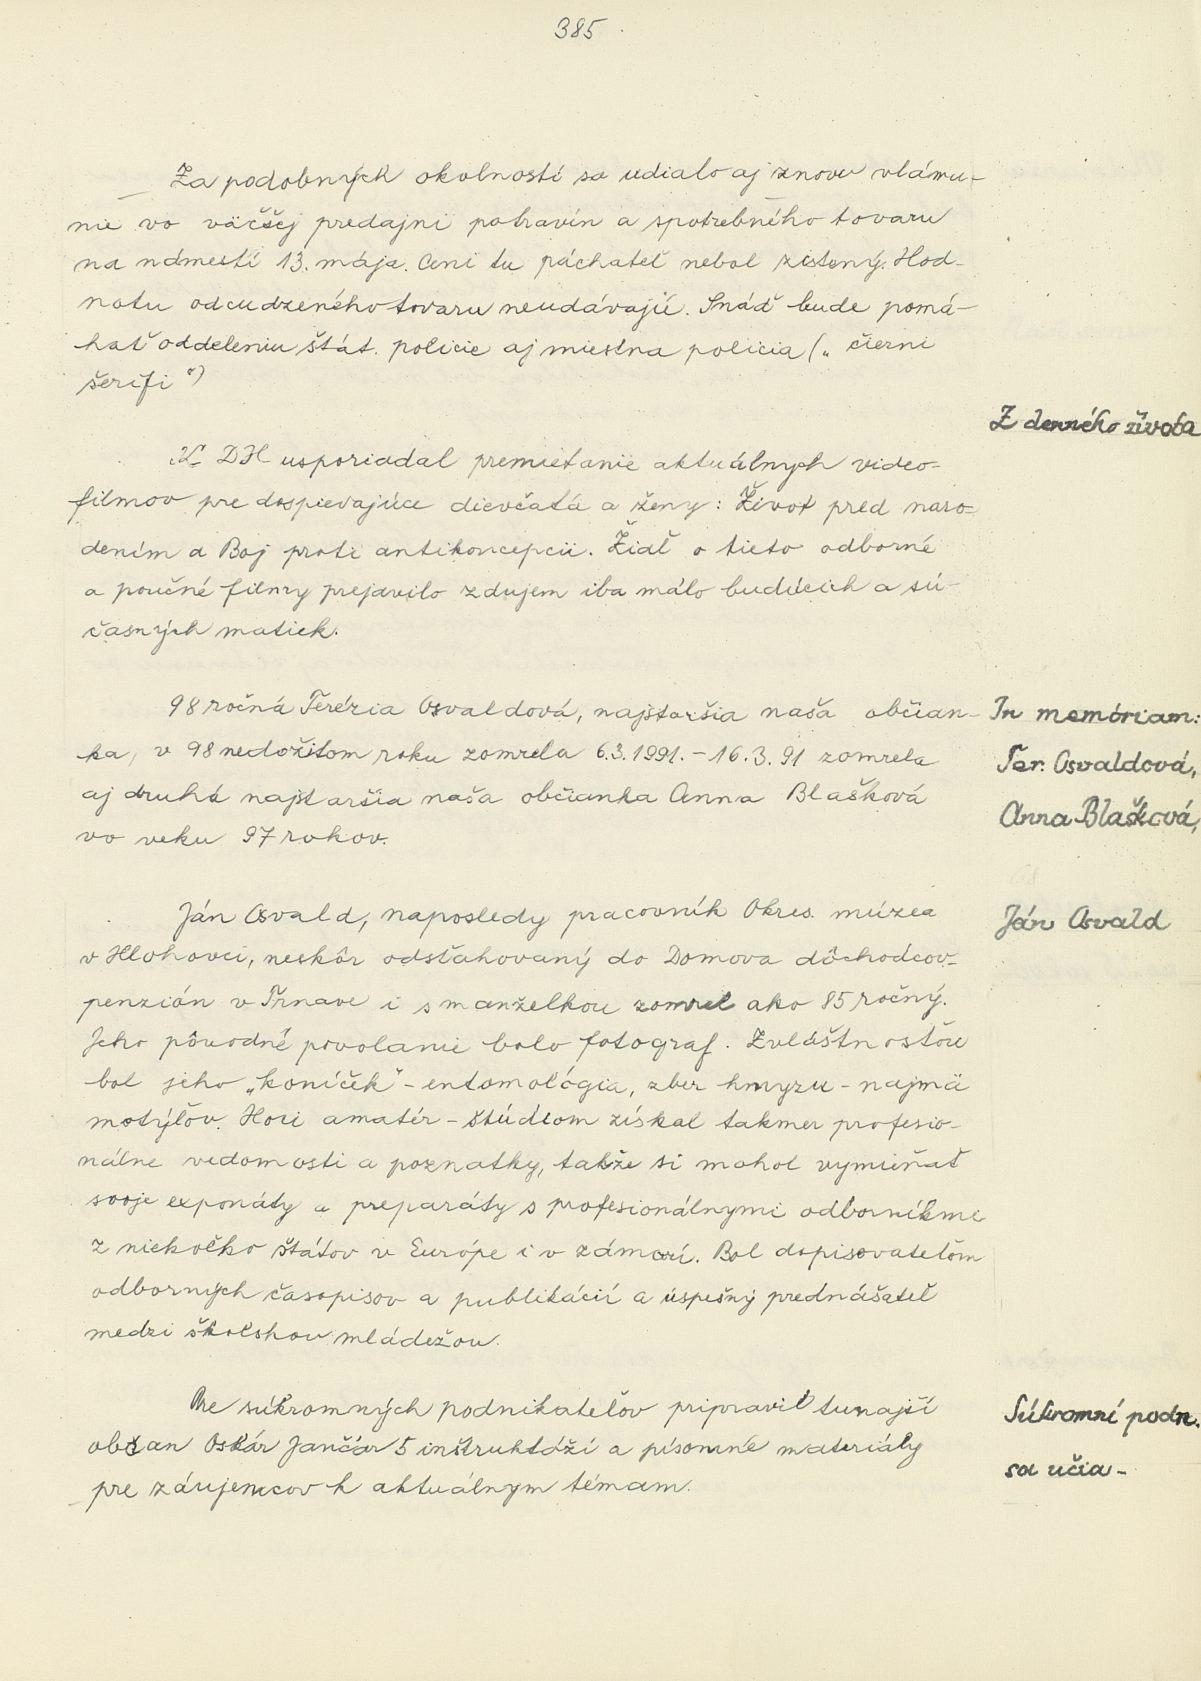 385
Za podobných okolností sa udialo aj znovu vlámu-
nie vo väčšej predajni potravín a spotrebného tovaru
na námestí 13. mája. Ani tu páchateľ nebol zistený. Hod-
notu odcudzeného tovaru neudávajú. Snáď bude pomá-
hať oddeleniu štát. policie aj miestna policia („čierni
šerifi")
Z denného života
K DH usporiadal premietanie aktuálnych video-
filmov pre dospievajúce dievčatá a ženy: Život pred naro-
dením a Boj proti antikoncepcii. Žiaľ o tieto odborné
a poučné filmy prejavilo záujem iba málo budúcich a sú-
časných matiek.
98 ročná Terézia Osvaldová, najstaršia naša občian-
ka, v 98 nedožitom roku zomrela 6.3.1991. - 16.3.91 zomrela
aj druhá najstaršia naša občianka Anna Blašková
vo veku 97 rokov.
In memóriam:
Ter. Osvaldová,
Anna Blašková,
Ján Osvald, naposledy pracovník Okres. múzea
v Hlohovci, neskôr odsťahovaný do Domova dôchodcov-
penzión v Trnave i s manželkou zomrel ako 85 ročný.
Jeho pôvodné povolanie bolo fotograf. Zvláštnosťou
bol jeho „koníček" - entomológia, zber hmyzu - najmä
motýľov. Hoci amatér - štúdiom získal takmer profesio-
nálne vedomosti a poznatky, takže si mohol vymieňať
svoje exponáty a preparáty s profesionálnymi odborníkmi
z niekoľko štátov v Európe i v zámorí. Bol dopisovateľom
odborných časopisov a publikácií a úspešný prednášateľ
medzi školskou mládežou.
Ján Osvald
Pre súkromných podnikateľov pripravil tunajší
občan Oskár Jančár 5 inštruktáží a písomné materiály
pre záujemcov k aktuálnym témam.
Súkromní podn.
sa učia-